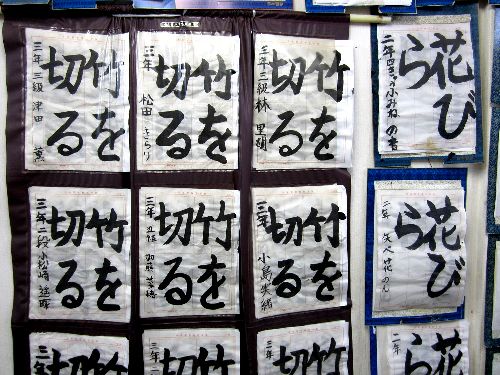 竹を
切る
三年 三級 津田 薫
竹を
切る
三年 松田 きらり
竹を
切る
三年 三級 林 里
花び
ら
二年 四きゅう 小みね の
竹を
切る
三年 二段 小松崎
竹を
切る
三年 五級 加藤
竹を
切る
三年 小島
花び
ら
二年 矢べ 花のん
竹を
切る
三年
竹
切
三年
竹
切
三年
花び
ら
二年